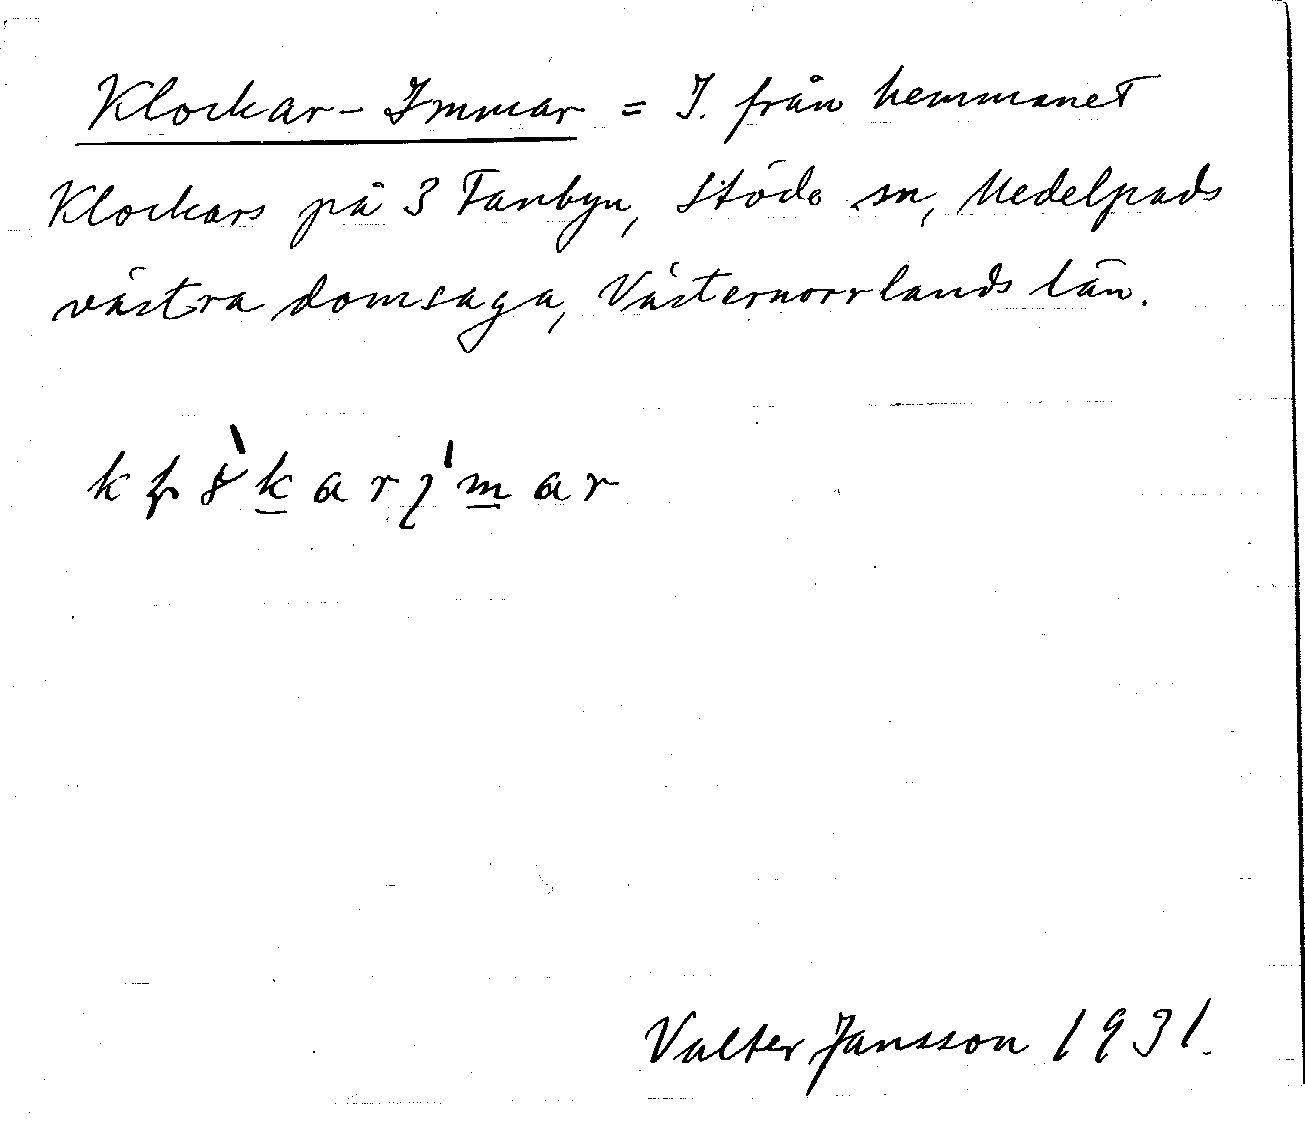 Klockar-Immar = I. från hemmanet
Klockars på 3 Fanbyn, Stöde sn, Medelpads
västra domsaga, Västernorrlands län.
Valter Jansson 1931.